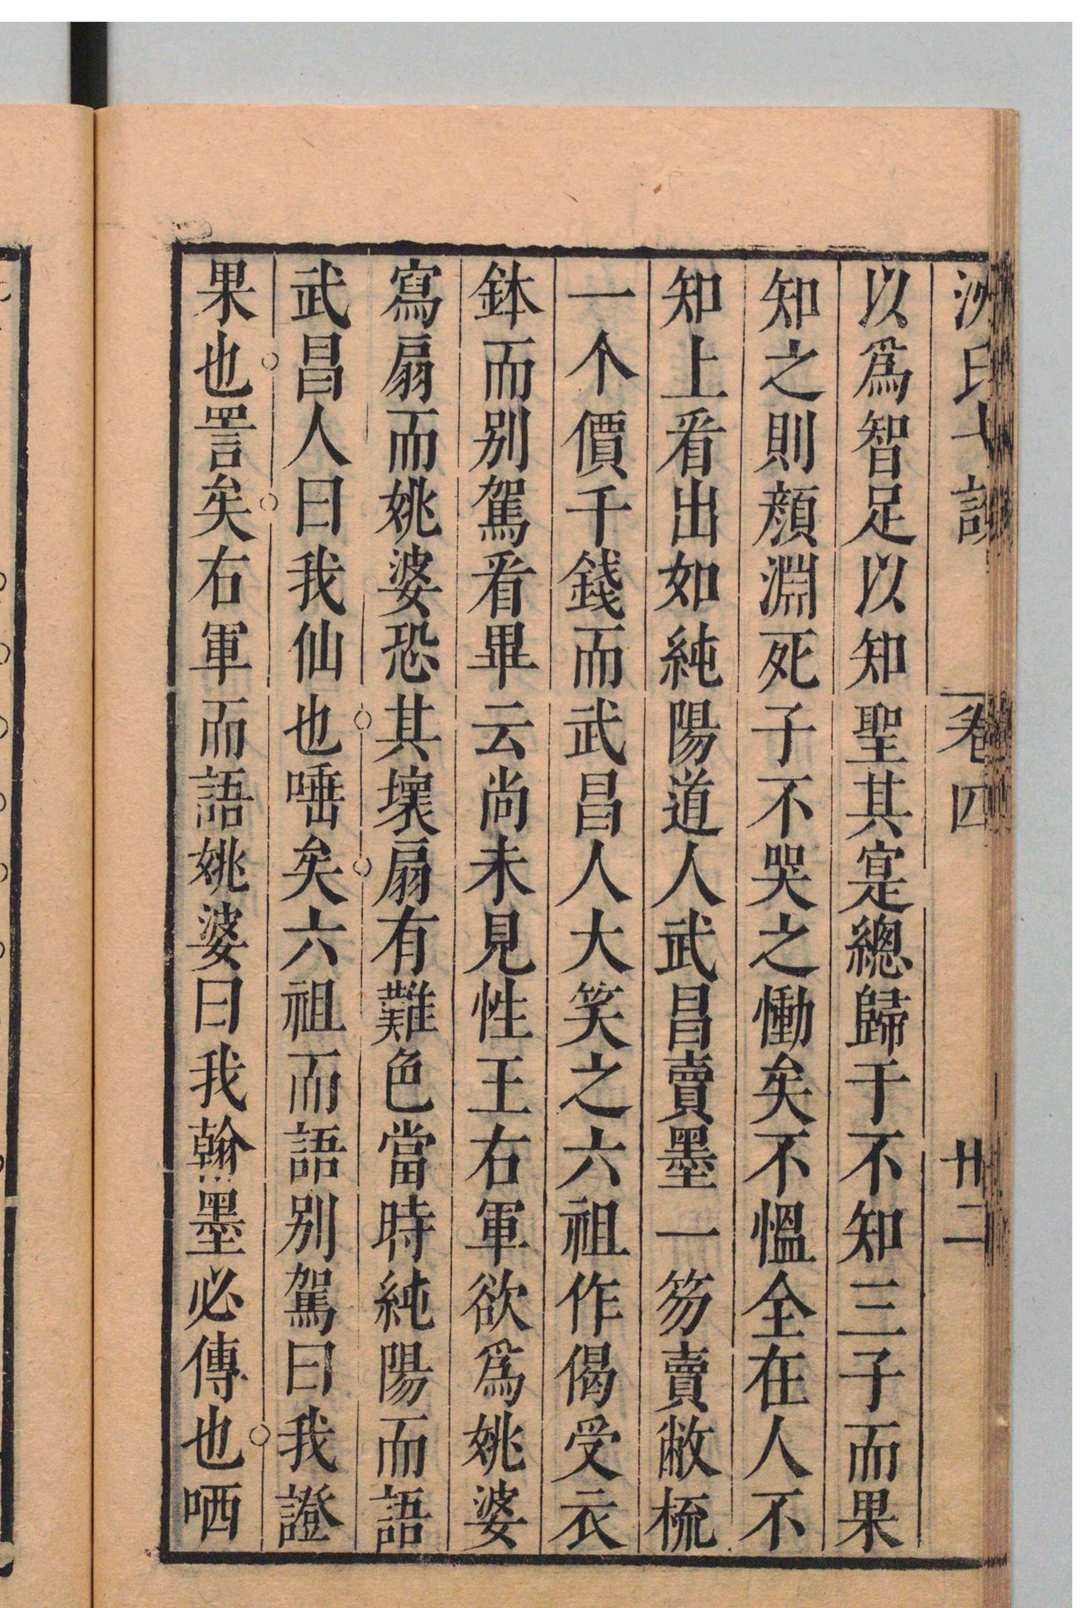 卷四
廿二
以爲智足以知聖其寔總歸于不知三子而果
知之則顏淵死子不哭之慟矣不慍全在人不
知上看出如純陽道人武昌賣墨一笏賣敝梳
一个價千錢而武昌人大笑之六祖作偈受衣
鉢而別駕看畢云尚未見性王右軍欲爲姚婆
寫扇而姚婆恐其壞扇有難色當時純陽而語
武昌人曰我仙也唾矣六祖而語別駕曰我證
果也詈矣右軍而語姚婆曰我翰墨必傳也哂